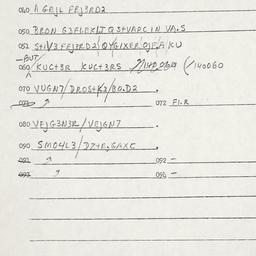 040 A GEJL FEJ3RD2
050 BRON G3FLEKLT Q3+VAPC IN VA.S
051 S+IV3 FEJ3RD2 QYGIXER OJEA KU
BUT/
060 KUC+3R KUC+3RS /140060
070 VUGN7/DROS+K3/80.D2 .
072 FI.R
080 VEJG3N3R/VEJGN7 .
090 SMO4L3/D7+E,GAXC .
091 092 -
093 094 -